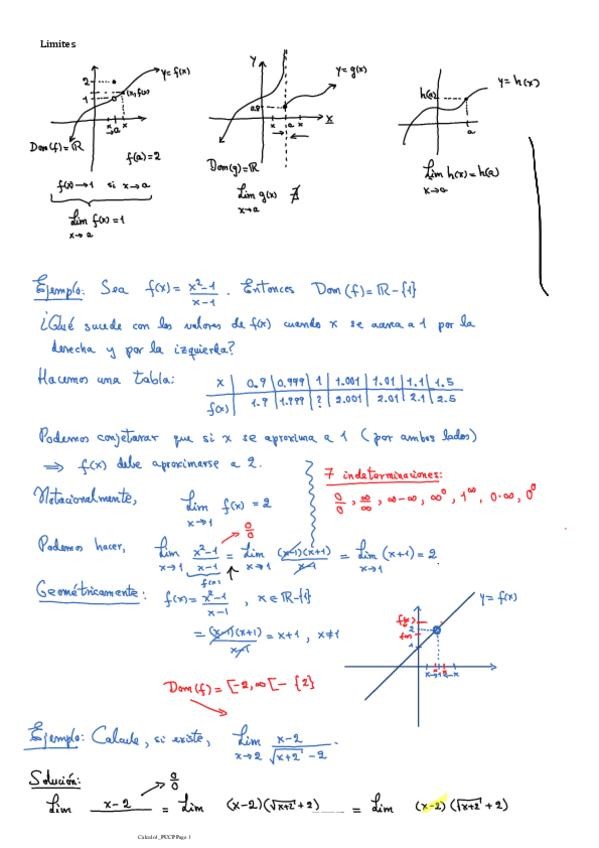 Limites
y = f(x)
2
1
(x, f(x))
x a x
Dom(f) = ℝ
f(a) = 2
f(x) → 1 si x → a
Lim f(x) = 1
x → a
y
y = g(x)
x a x
x
Dom(g) = ℝ
Lim g(x) ∄
x → a
y = h(x)
h(a)
a
Lim h(x) = h(a)
x → a
Ejemplo: Sea f(x) = x²-1 / x-1 . Entonces Dom(f) = ℝ - {1}
¿Qué sucede con los valores de f(x) cuando x se acerca a 1 por la
derecha y por la izquierda?
Hacemos una tabla:
x | 0.9 | 0.999 | 1 | 1.001 | 1.01 | 1.1 | 1.5
f(x) | 1.9 | 1.999 | ? | 2.001 | 2.01 | 2.1 | 2.5
Podemos conjeturar que si x se aproxima a 1 (por ambos lados)
⟹ f(x) debe aproximarse a 2.
7 indeterminaciones:
0/0, ∞/∞, ∞-∞, ∞⁰, 1^∞, 0·∞, 0⁰
Notacionalmente, Lim f(x) = 2
x → 1
0/0
Podemos hacer, Lim x²-1 / x-1 = Lim (x-1)(x+1) / x-1 = Lim (x+1) = 2
x → 1 x → 1 x → 1
f(x)
Geométricamente: f(x) = x²-1 / x-1 , x ∈ ℝ - {1}
= (x-1)(x+1) / x-1 = x+1 , x ≠ 1
y = f(x)
f(x)
2
f(x)
1
x → 1 ← x
Dom(f) = [-2, ∞[ - {2}
Ejemplo: Calcule, si existe, Lim x-2 / √x+2 - 2 .
x → 2
Solución:
0/0
Lim x-2 = Lim (x-2)(√x+2 + 2) = Lim (x-2)(√x+2 + 2)
Calculo1_PUCP Page 1